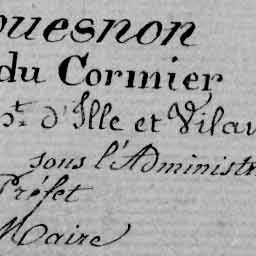 ouesnon
du Cormier
pt. d'Ille et Vilai
sous l'Administr
Préfet
Maire